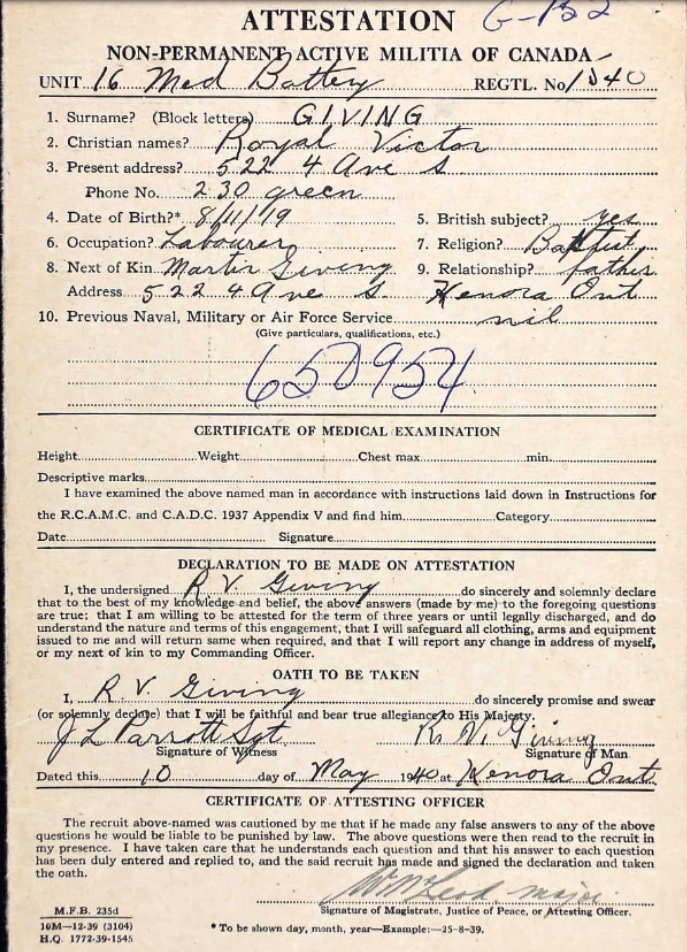 ATTESTATION G-152
NON-PERMANENT ACTIVE MILITIA OF CANADA
UNIT 16 Med Battery REGTL. No 1540
1. Surname? (Block letters) GIVING
2. Christian names? Royal Victor
3. Present address? 522 4 Ave S.
Phone No. 230 green
4. Date of Birth?* 8/11/19 5. British subject? yes
6. Occupation? Labourer 7. Religion? Baptist
8. Next of Kin Martin Giving 9. Relationship? father
Address 522 4 Ave S. Kenora Ont
10. Previous Naval, Military or Air Force Service nil
(Give particulars, qualifications, etc.)
650954
CERTIFICATE OF MEDICAL EXAMINATION
Height Weight Chest max min.
Descriptive marks
I have examined the above named man in accordance with instructions laid down in Instructions for
the R.C.A.M.C. and C.A.D.C. 1937 Appendix V and find him Category
Date Signature
DECLARATION TO BE MADE ON ATTESTATION
I, the undersigned R. V. Giving do sincerely and solemnly declare
that to the best of my knowledge and belief, the above answers (made by me) to the foregoing questions
are true; that I am willing to be attested for the term of three years or until legally discharged, and do
understand the nature and terms of this engagement, that I will safeguard all clothing, arms and equipment
issued to me and will return same when required, and that I will report any change in address of myself,
or my next of kin to my Commanding Officer.
OATH TO BE TAKEN
I, R. V. Giving do sincerely promise and swear
(or solemnly declare) that I will be faithful and bear true allegiance to His Majesty.
J L Parrott Sgt. R. V. Giving
Signature of Witness Signature of Man
Dated this 10 day of May 1940 at Kenora Ont.
CERTIFICATE OF ATTESTING OFFICER
The recruit above-named was cautioned by me that if he made any false answers to any of the above
questions he would be liable to be punished by law. The above questions were then read to the recruit in
my presence. I have taken care that he understands each question and that his answer to each question
has been duly entered and replied to, and the said recruit has made and signed the declaration and taken
the oath.
W McLeod major
Signature of Magistrate, Justice of Peace, or Attesting Officer.
M.F.B. 235d
10M—12-39 (3104)
H.Q. 1772-39-1545
* To be shown day, month, year—Example:—25-8-39.